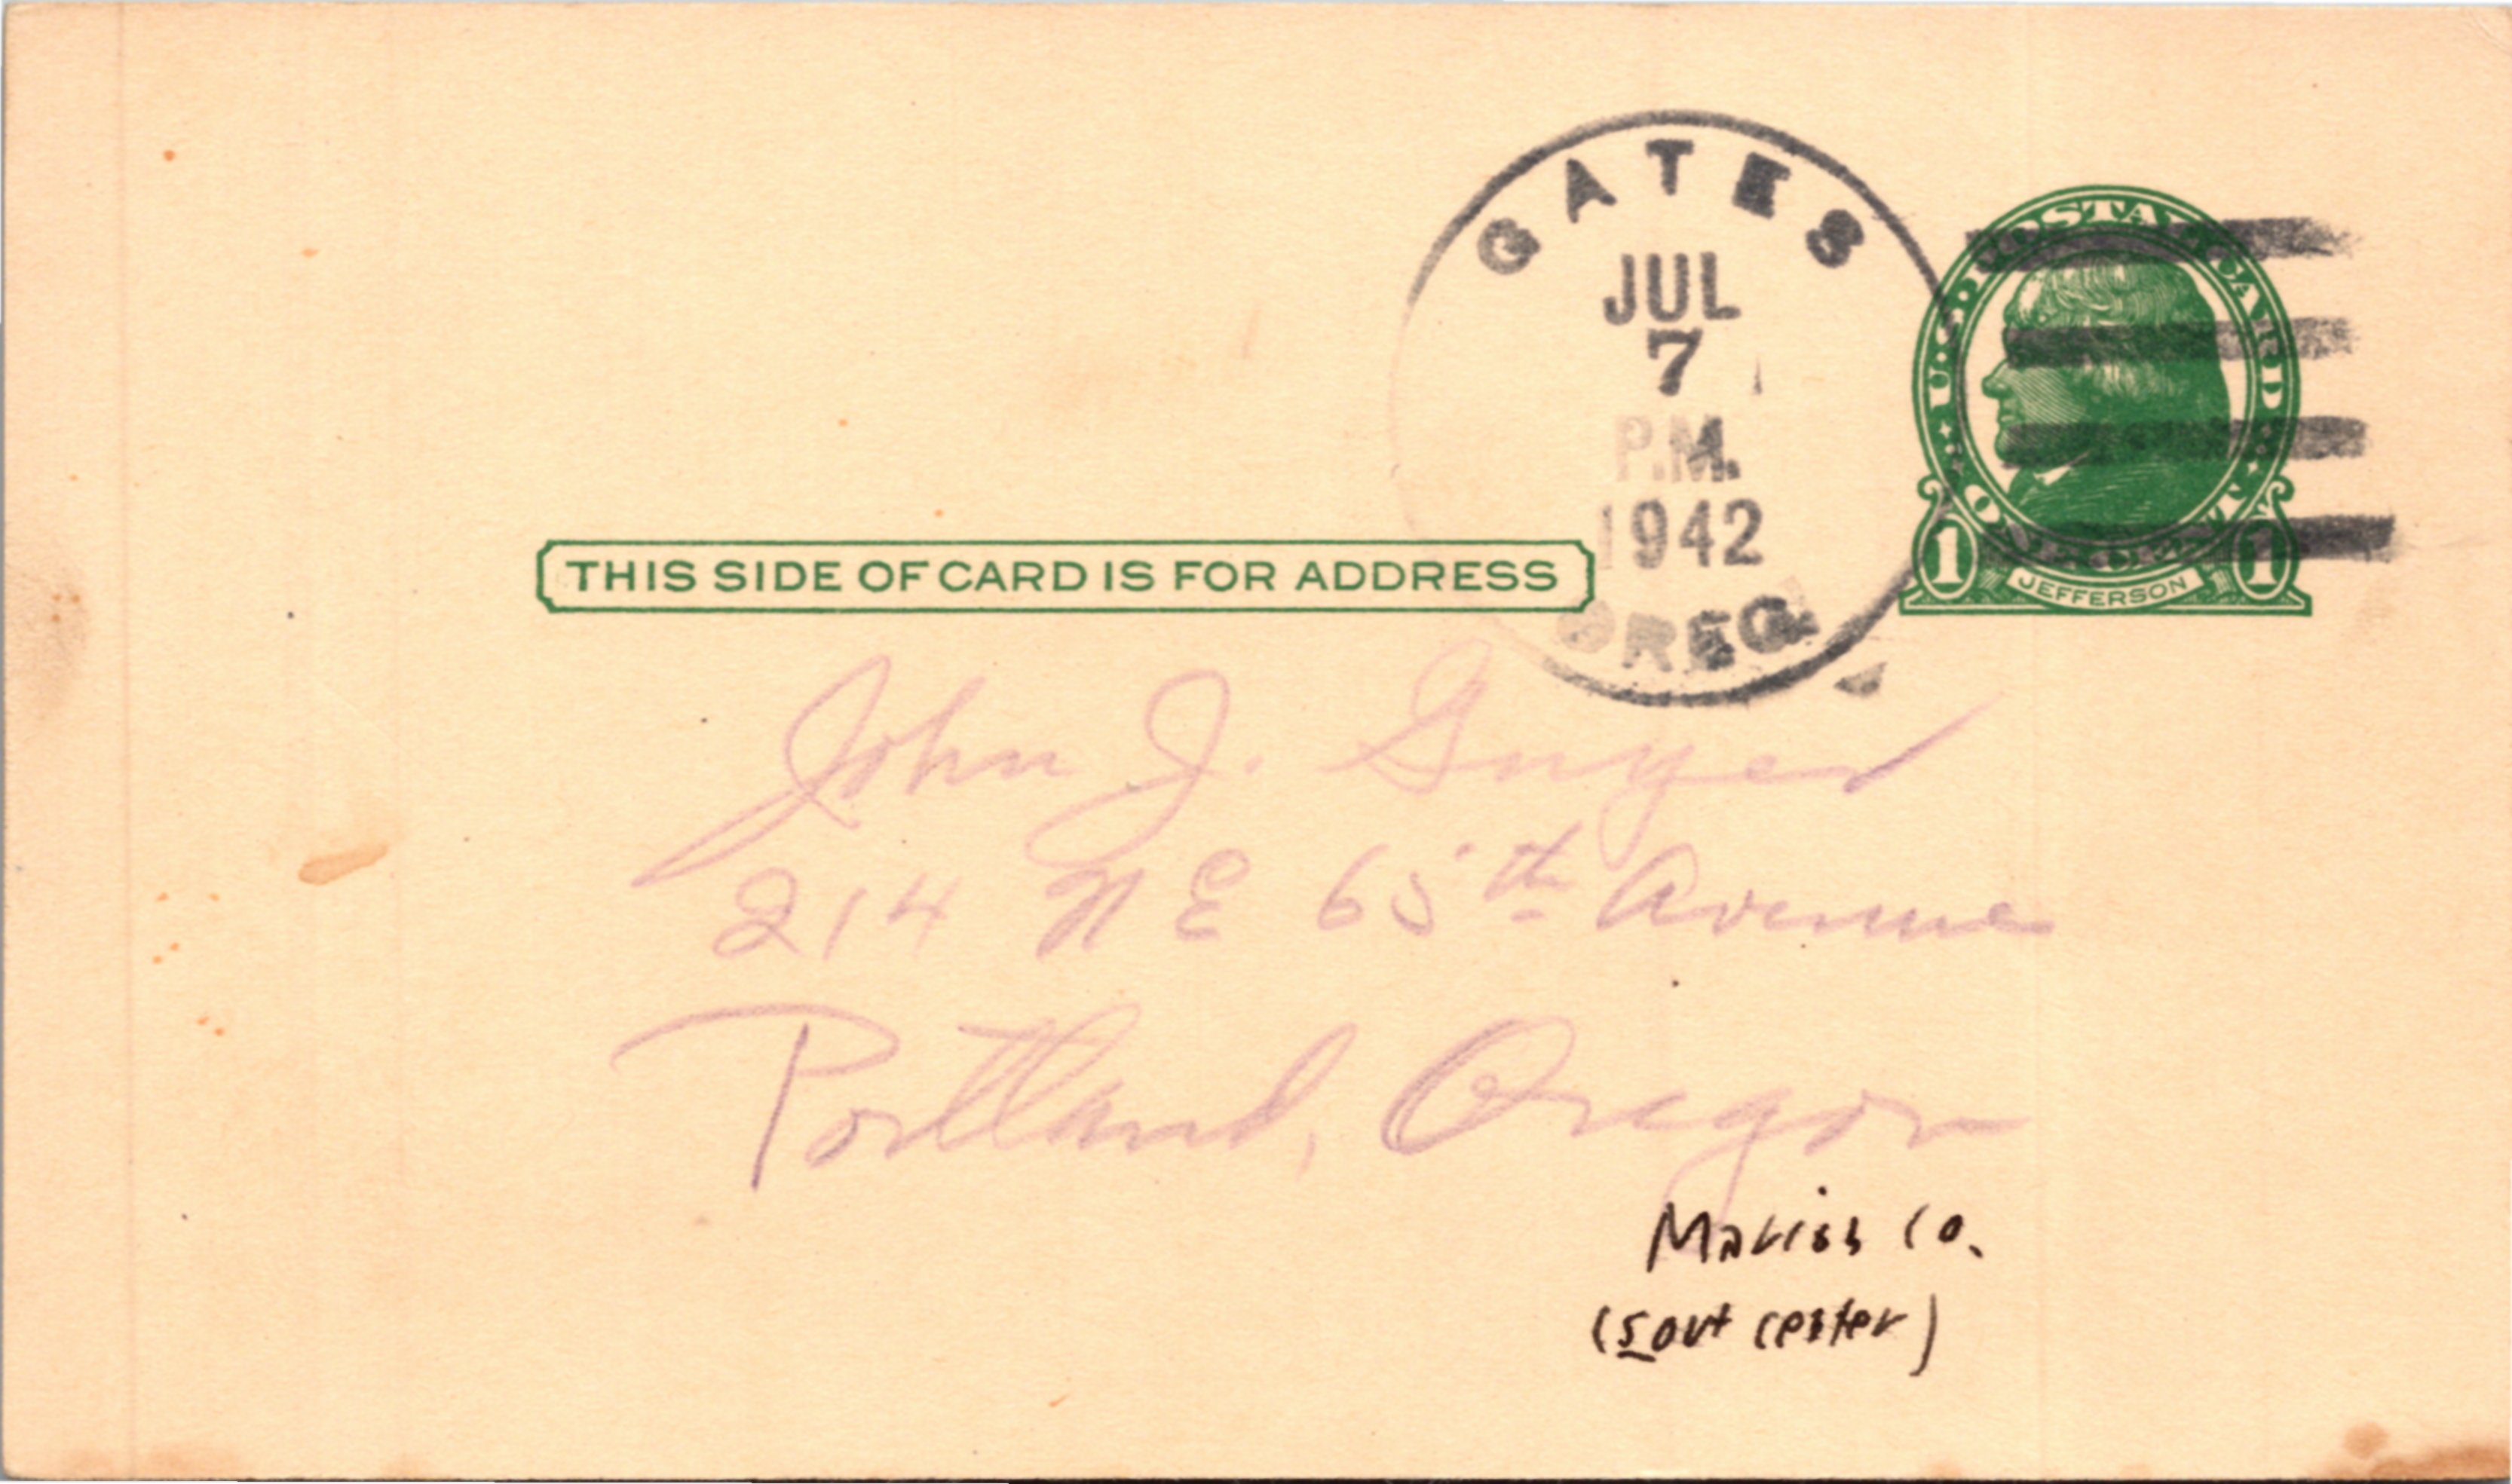 GATES
JUL
7
P.M.
1942
OREG.
U.S. POSTAL CARD
ONE CENT
1 JEFFERSON 1
THIS SIDE OF CARD IS FOR ADDRESS
John J.
214 N E 65th Avenue
Portland, Oregon
Marion Co.
center)